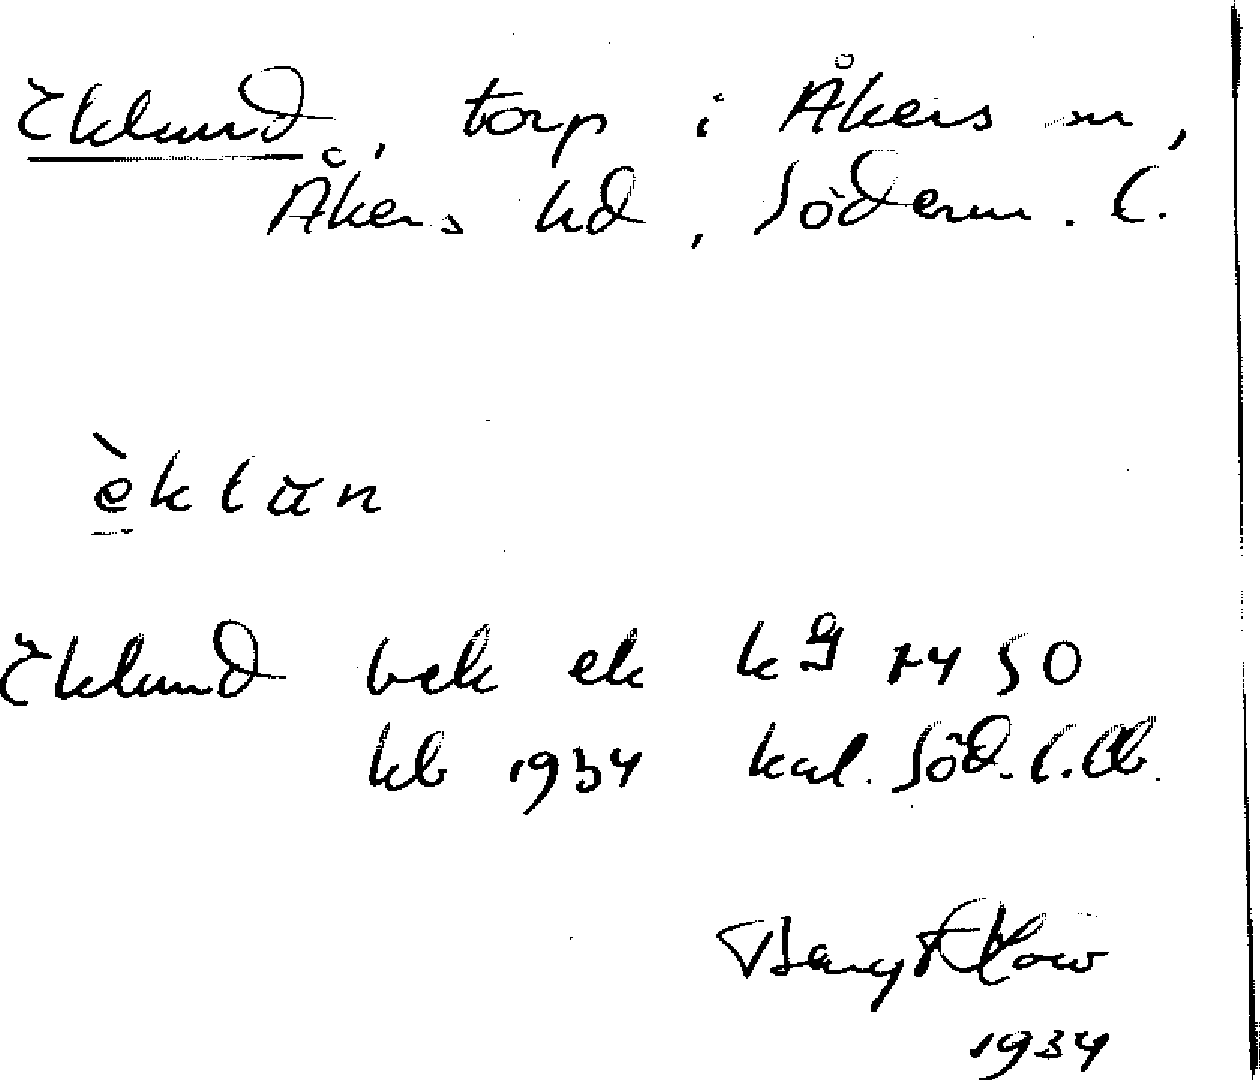 Eklund, torp i Åkers sn,
Åkers hd, Söderm. l.
èklūn
Eklund bek ek kg 1450
kb 1934 kal. Söd. l.
1934